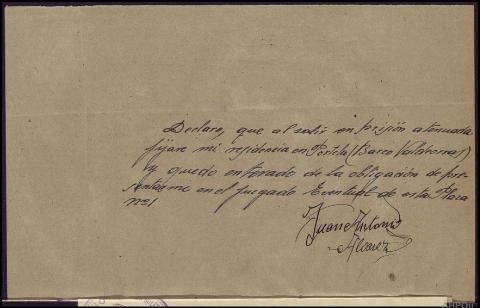 Declaro, que al salir en prisión atenuada
fijare mi residencia en Portela (Barco Valdeorras)
y quedo enterado de la obligación de pre-
sentarme en el juzgado Eventual de esta Plaza
nº1
Juan Antonio
Alvarez